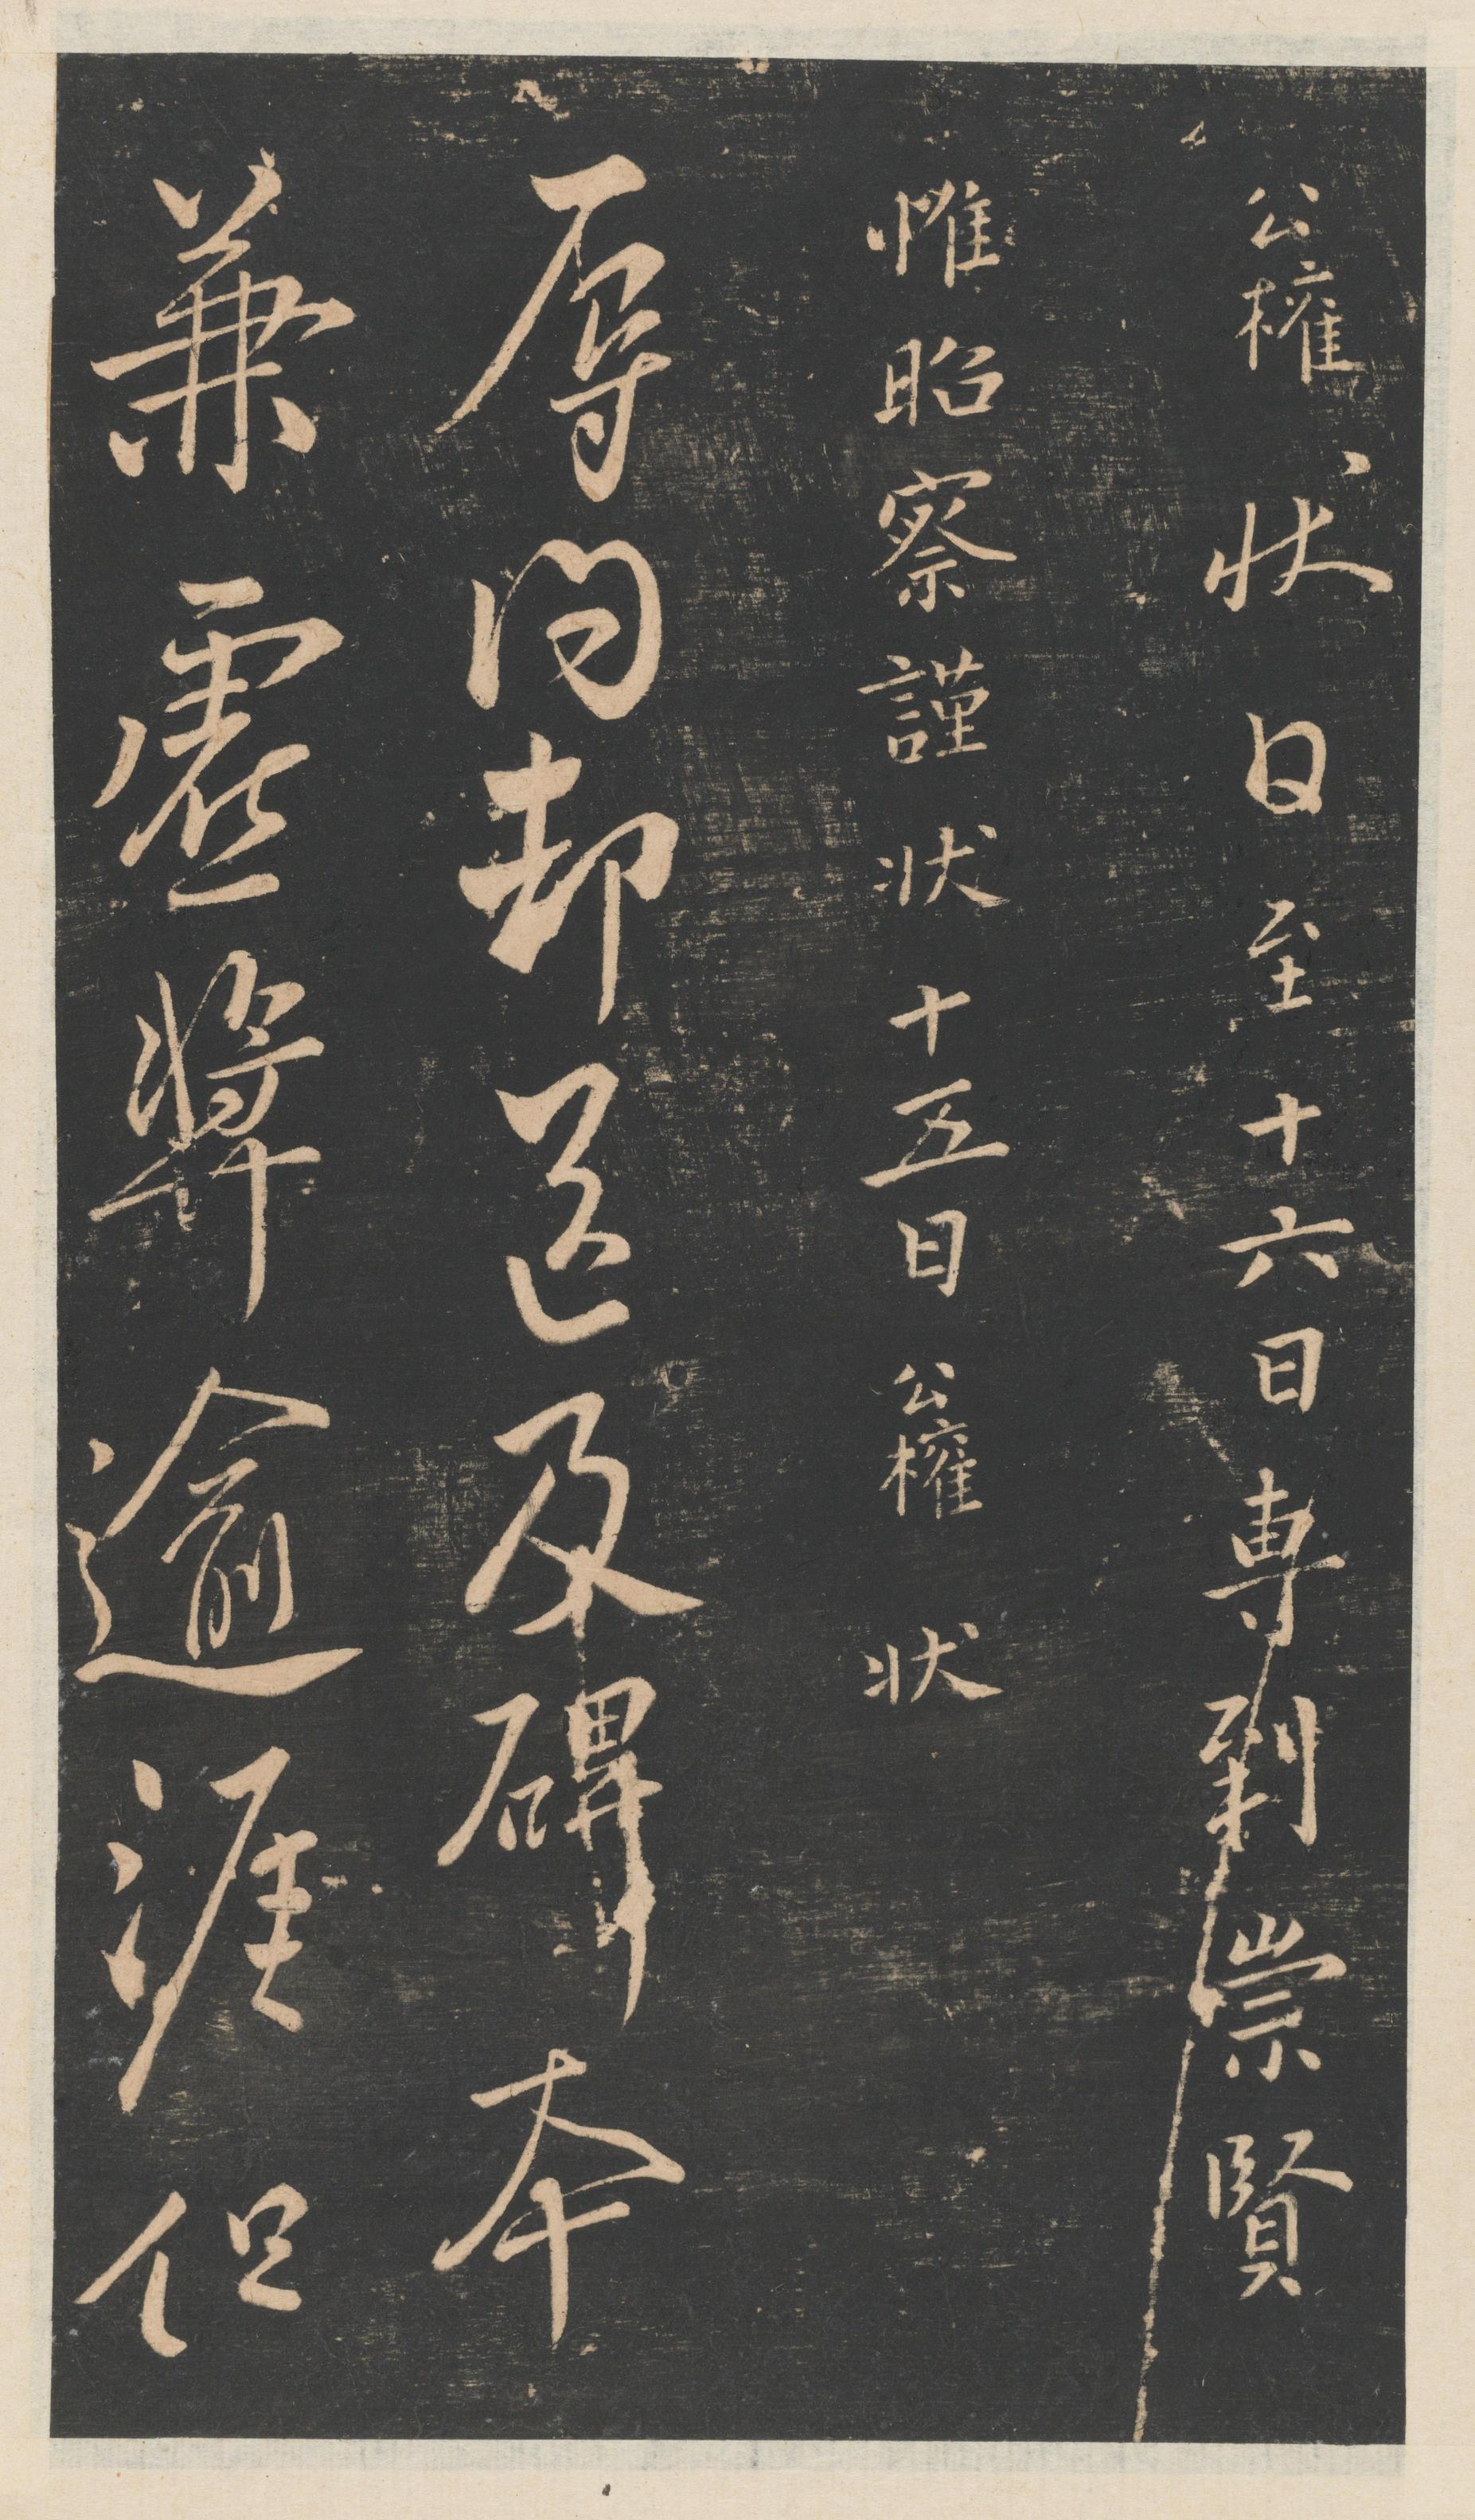 公權狀日至十六日專到崇賢
惟昭察謹狀十五日公權狀
辱問却送及碑本
兼蒙獎逾涯但